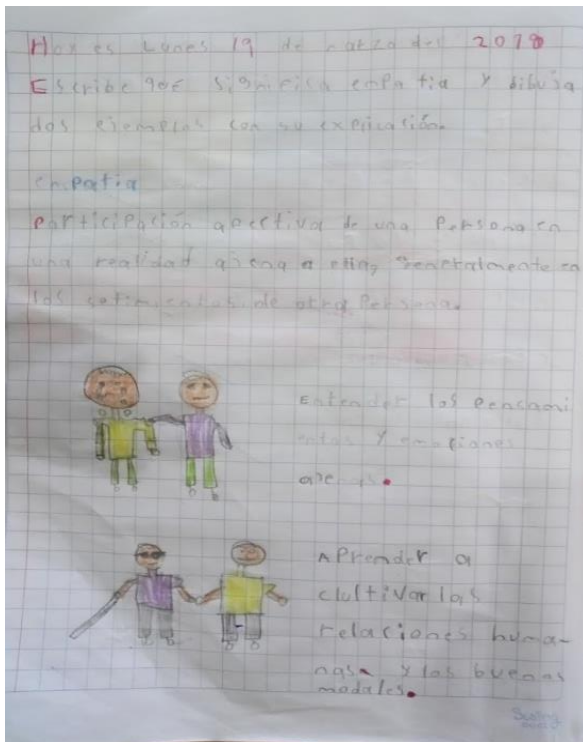 Hoy es Lunes 19 de marzo del 2018
Escribe qué significa empatía y dibuja
dos ejemplos con su explicación.
empatia
Participación afectiva de una Persona en
una realidad ajena a ella, generalmente en
los sentimientos de otra Persona.
Entender los pensami
entos y emociones
ajenas.
APrender a
clultivar las
relaciones huma-
nas y los buenos
modales.